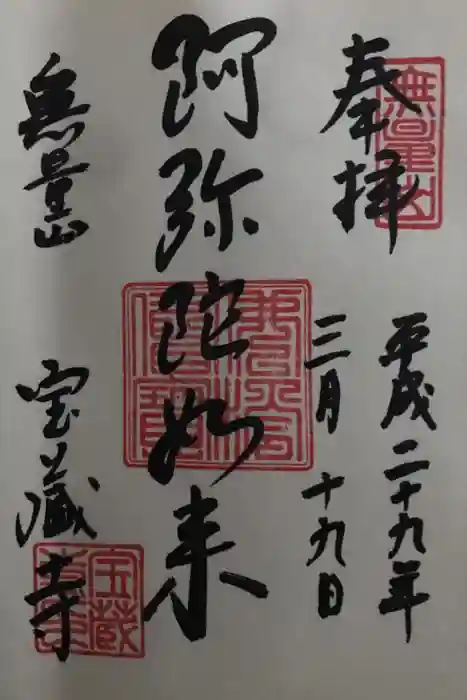 奉拝
無量山
平成二十九年
三月十九日
阿弥陀如来
無量山
宝蔵寺